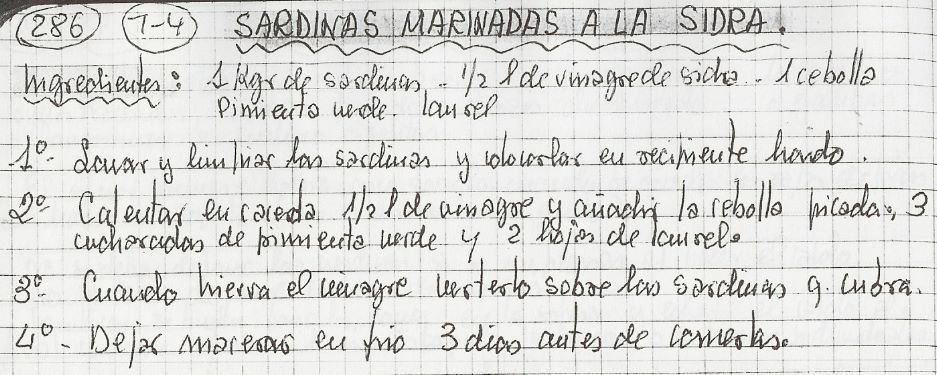 286 7-4 SARDINAS MARINADAS A LA SIDRA.
Ingredientes: 1 Kgr de sardinas - 1/2 l de vinagre de sidra - 1 cebolla
Pimiento verde. laurel
1º- Lavar y limpiar las sardinas y colocarlas en recipiente hondo.
2º- Calentar en cazuela 1/2 l de vinagre y añadir la cebolla picada, 3
cucharadas de pimiento verde y 2 hojas de laurel.
3º- Cuando hierva el vinagre verterlo sobre las sardinas q. cubra.
4º- Dejar macerar en frio 3 dias antes de comerlas.